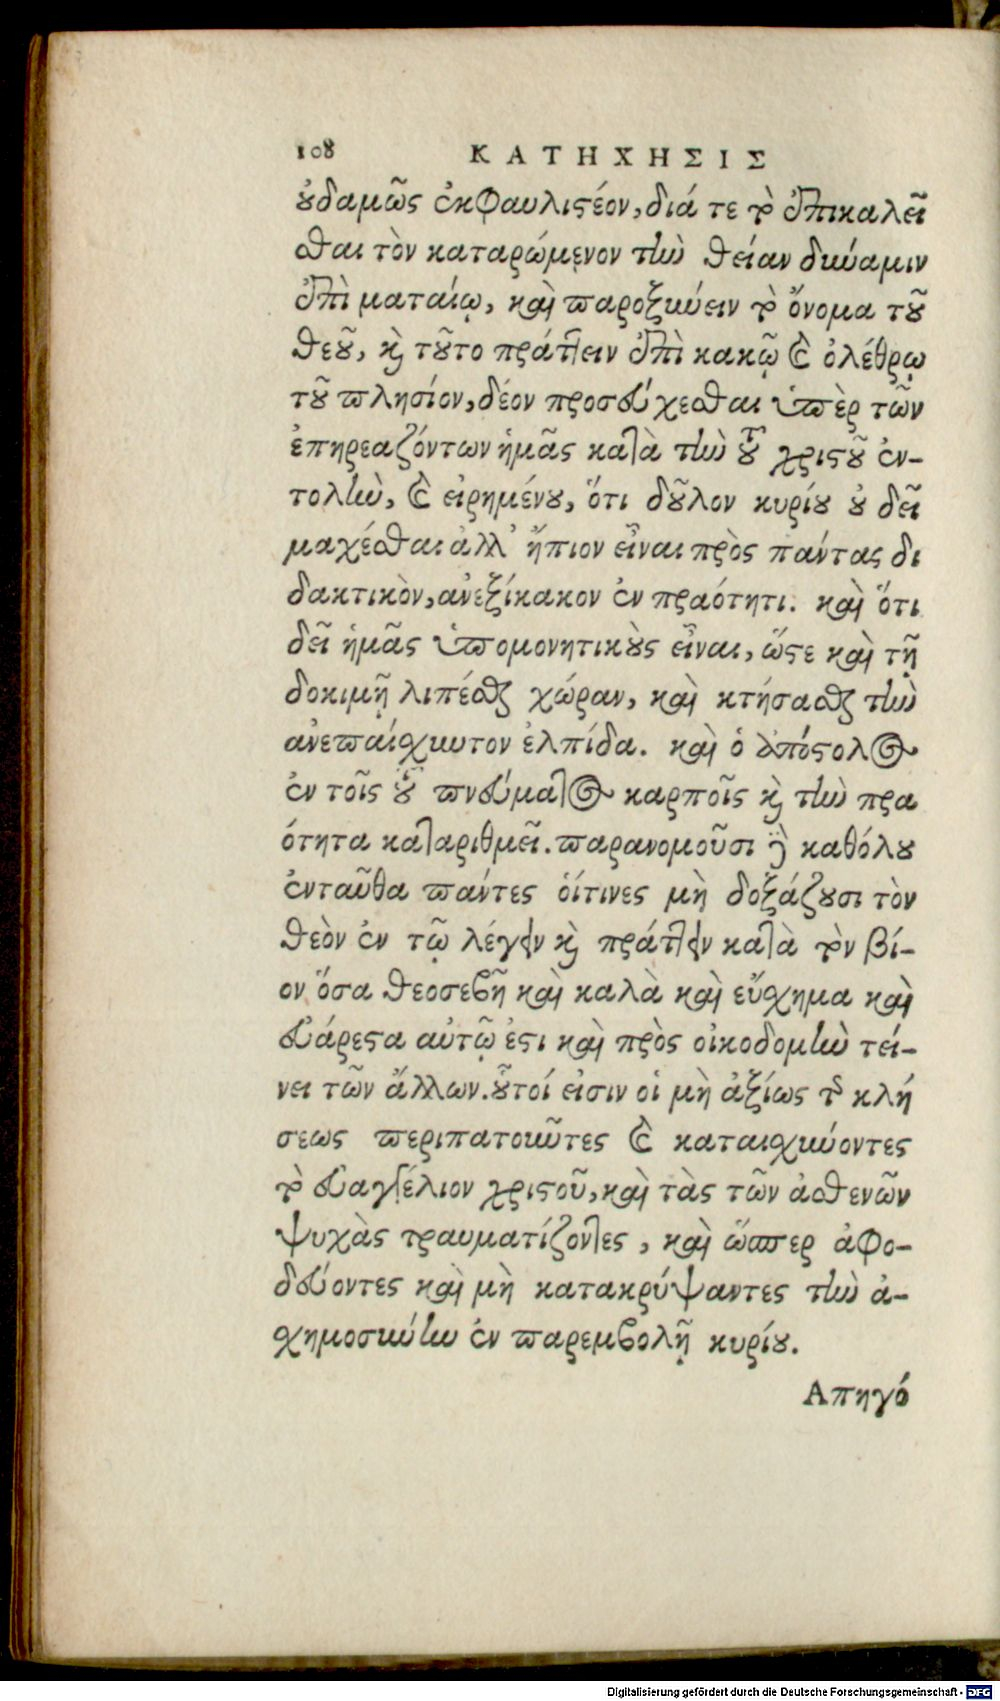 108 ΚΑΤΗΧΗΣΙΣ
οὐδαμῶς ἐκφαυλιστέον, διά τε τὸ ἐπικαλεῖ
σθαι τὸν καταρώμενον τὴν θείαν δύναμιν
ἐπὶ ματαίῳ, καὶ παροξύνειν τὸ ὄνομα τοῦ
θεοῦ, καὶ τοῦτο πράττειν ἐπὶ κακῷ καὶ ὀλέθρῳ
τοῦ πλησίον, δέον προσεύχεσθαι ὑπὲρ τῶν
ἐπηρεαζόντων ἡμᾶς κατὰ τὴν τοῦ χριστοῦ ἐν-
τολὴν, καὶ εἰρημένου, ὅτι δοῦλον κυρίου οὐ δεῖ
μαχέσθαι ἀλλ' ἤπιον εἶναι πρὸς πάντας δι
δακτικὸν, ἀνεξίκακον ἐν πραότητι. καὶ ὅτι
δεῖ ἡμᾶς ὑπομονητικοὺς εἶναι, ὥστε καὶ τῇ
δοκιμῇ λιπέσθαι χώραν, καὶ κτήσασθαι τὴν
ἀνεπαίσχυντον ἐλπίδα. καὶ ὁ ἀπόστολος
ἐν τοῖς τοῦ πνεύματος καρποῖς καὶ τὴν πρα
ότητα καταριθμεῖ. παρανομοῦσι δὲ καθόλου
ἐνταῦθα πάντες οἵτινες μὴ δοξάζουσι τὸν
θεὸν ἐν τῷ λέγειν καὶ πράττειν κατὰ τὸν βί-
ον ὅσα θεοσεβῆ καὶ καλὰ καὶ εὔσχημα καὶ
εὐάρεστα αὐτῷ ἐστι καὶ πρὸς οἰκοδομὴν τεί-
νει τῶν ἄλλων. οὗτοί εἰσιν οἱ μὴ ἀξίως τῆς κλή
σεως περιπατοῦντες καὶ καταισχύνοντες
τὸ εὐαγγέλιον χριστοῦ, καὶ τὰς τῶν ἀσθενῶν
ψυχὰς τραυματίζοντες, καὶ ὥσπερ ἀφο-
δεύοντες καὶ μὴ κατακρύψαντες τὴν ἀ-
σχημοσύνην ἐν παρεμβολῇ κυρίου.
Απηγό
Digitalisierung gefördert durch die Deutsche Forschungsgemeinschaft - DFG